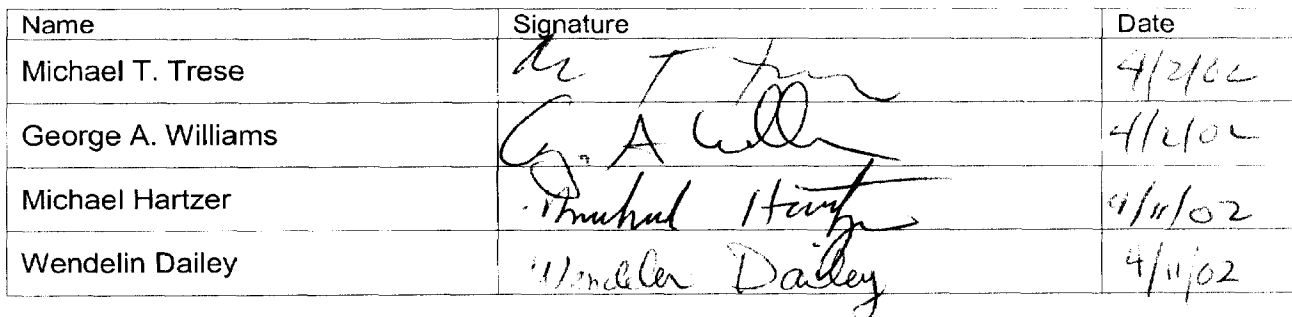 Name Signature Date
Michael T. Trese M T Tre 4/2/02
George A. Williams G. A Will 4/2/02
Michael Hartzer Michael Hartzer 4/11/02
Wendelin Dailey Wendelin Dailey 4/11/02